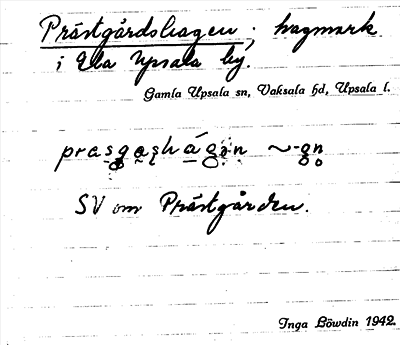 Prästgårdshagen; hagmark
i Gla Upsala by.
Gamla Upsala sn, Vaksala hd, Upsala l.
prasgashágon ~-gn
SV om Prästgården.
Inga Löwdin 1942.